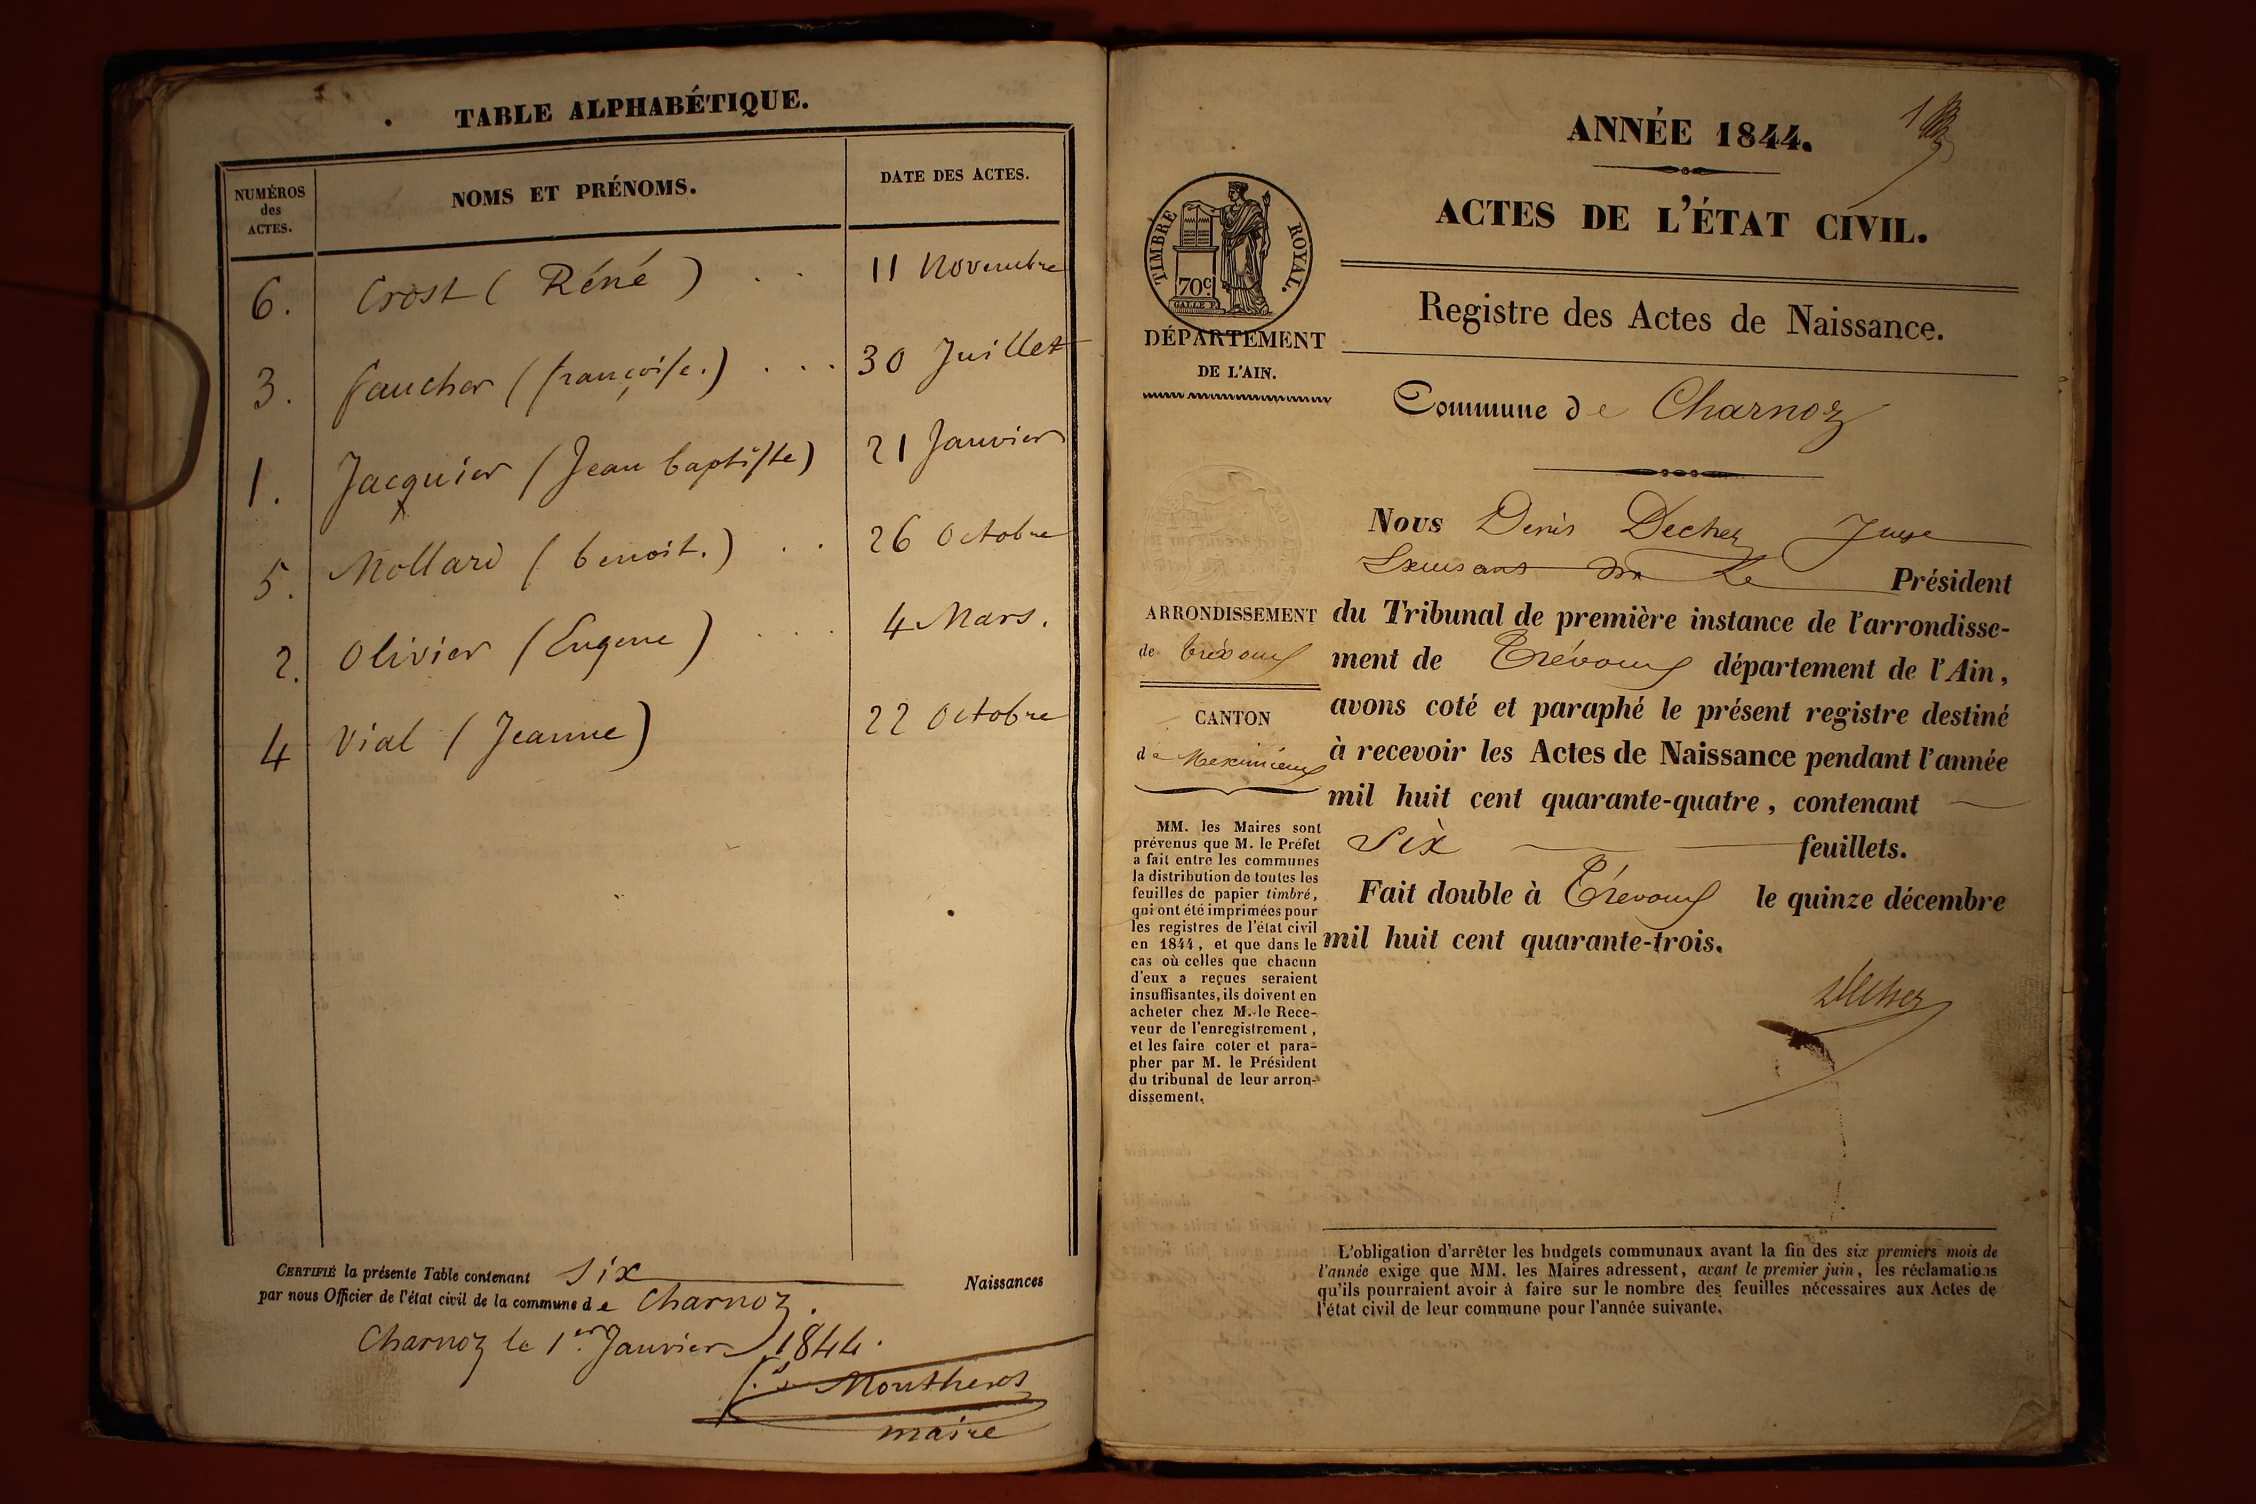 TABLE ALPHABÉTIQUE.
NUMÉROS des ACTES. NOMS ET PRÉNOMS. DATE DES ACTES.
6. Crost ( Réné ) . . 11 Novembre
3. faucher ( françoise. ) . . . 30 Juillet
1. Jacquier ( Jean baptiste ) 21 Janvier
5. Mollard ( benoit. ) . . 26 Octobre
2. Olivier ( Eugene ) . . . 4 Mars.
4 Vial ( Jeanne ) 22 Octobre
CERTIFIÉ la présente Table contenant six Naissances
par nous Officier de l'état civil de la commune de Charnoz.
Charnoz le 1er. Janvier 1844.
Montheros
maire
1
ANNÉE 1844.
ACTES DE L'ÉTAT CIVIL.
Registre des Actes de Naissance.
Commune de Charnoz
TIMBRE ROYAL.
70c.
GALLE F.
DÉPARTEMENT
DE L'AIN.
ARRONDISSEMENT
de Trévoux
CANTON
de Meximieux
MM. les Maires sont
prévenus que M. le Préfet
a fait entre les communes
la distribution de toutes les
feuilles de papier timbré,
qui ont été imprimées pour
les registres de l'état civil
en 1844, et que dans le
cas où celles que chacun
d'eux a reçues seraient
insuffisantes, ils doivent en
acheter chez M. le Rece-
veur de l'enregistrement,
et les faire coter et para-
pher par M. le Président
du tribunal de leur arron-
dissement.
Nous Denis Dechez Juge
le Président
du Tribunal de première instance de l'arrondisse-
ment de Trévoux département de l'Ain,
avons coté et paraphé le présent registre destiné
à recevoir les Actes de Naissance pendant l'année
mil huit cent quarante-quatre, contenant
Six feuillets.
Fait double à Trévoux le quinze décembre
mil huit cent quarante-trois.
Dechez
L'obligation d'arrêter les budgets communaux avant la fin des six premiers mois de
l'année exige que MM. les Maires adressent, avant le premier juin, les réclamations
qu'ils pourraient avoir à faire sur le nombre des feuilles nécessaires aux Actes de
l'état civil de leur commune pour l'année suivante.